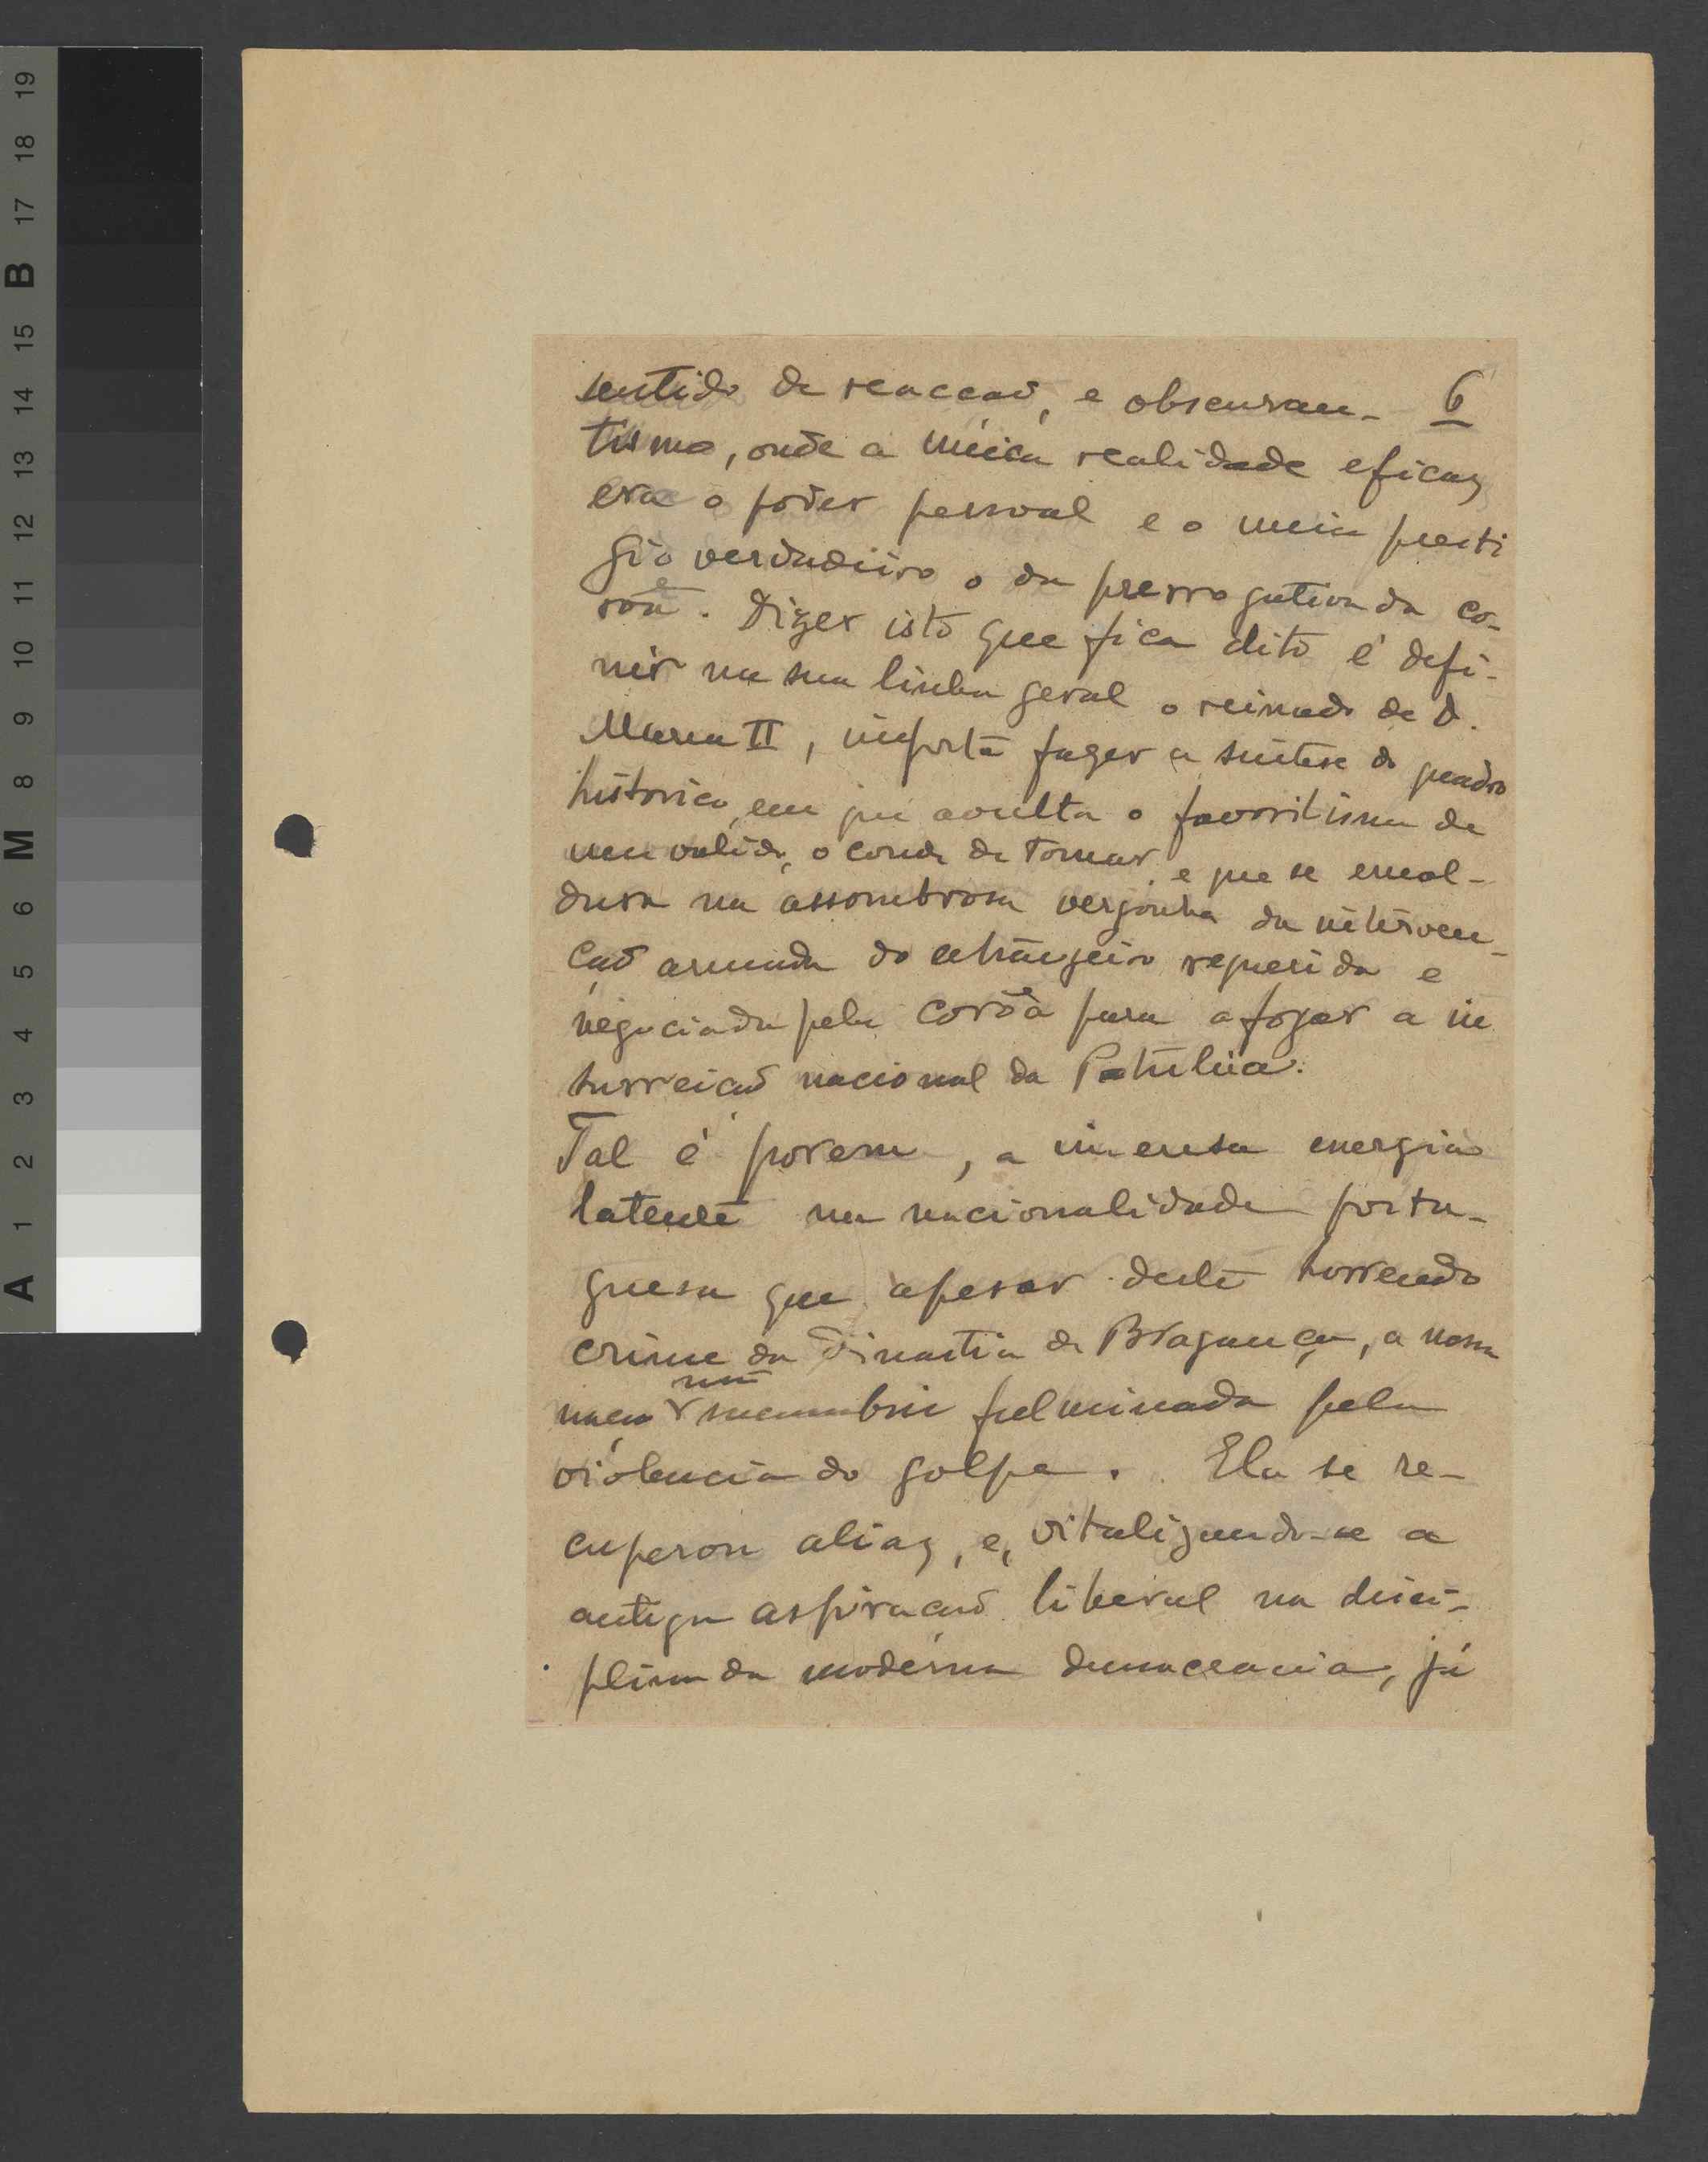 sentido de reacçaõ, e obscuran- 6
tismo, onde a única realidade eficaz
era o poder pessoal e o unico presti
gio verdadeiro o da prerrogativa da co-
rôa. Dizer isto que fica dito é defi-
nir na sua linha geral o reinado de D.
Maria II, importa fazer a sintese do quadro
historico, em que avulta o favoritismo de
um valido, o conde de Tomar, e que se emol-
dura na assombrosa vergonha da interven-
çaõ armada do estrangeiro requerida e
negociada pela corôa para afogar a in
surreiçaõ nacional da Patuleia.
Tal é porem, a imensa energia
latente na nacionalidade portu-
guesa que apesar deste horrendo
crime da Dinastia de Bragança, a nossa
naçaõ não sucumbiu fulminada pela
violencia do golpe. Ela se re-
cuperou aliaz, e, vitalizando-se a
antiga aspiraçaõ liberal na disci-
plina da moderna democracia, já